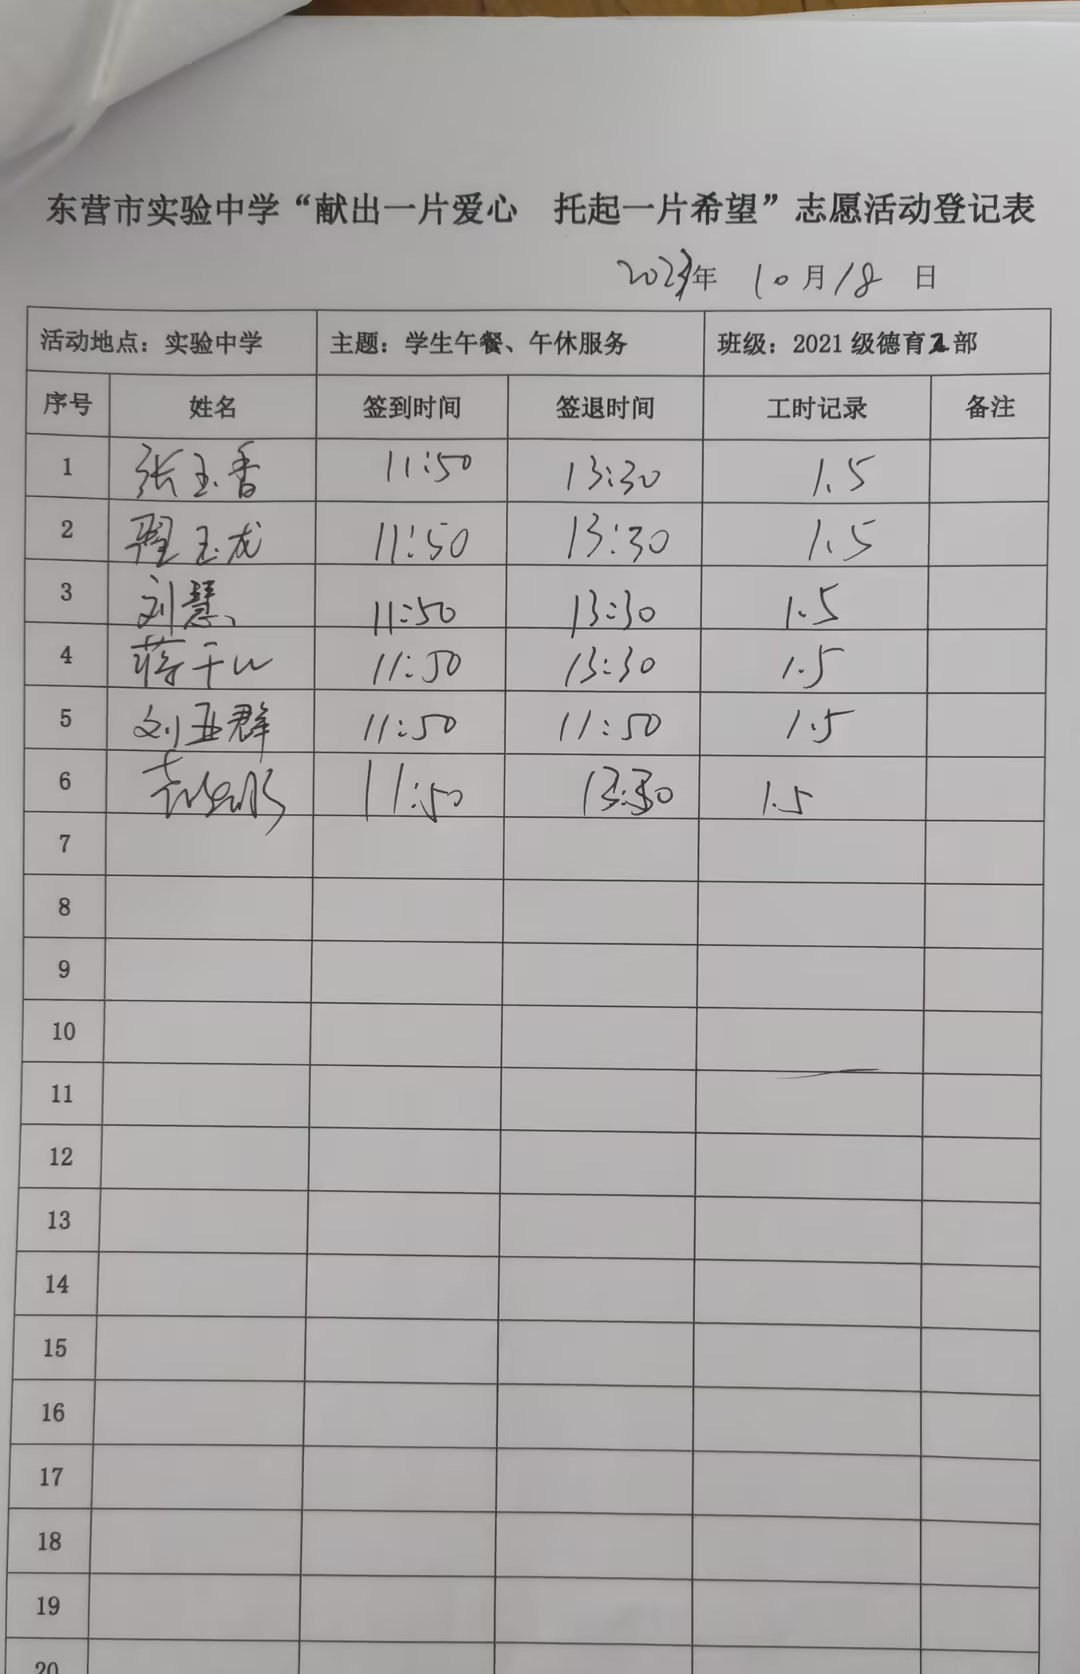 东营市实验中学“献出一片爱心 托起一片希望”志愿活动登记表
2023年 10月18日
活动地点：实验中学 主题：学生午餐、午休服务 班级：2021级德育2部
序号 姓名 签到时间 签退时间 工时记录 备注
1 张玉香 11:50 13:30 1.5
2 玉龙 11:50 13:30 1.5
3 刘慧 11:50 13:30 1.5
4 蒋千山 11:50 13:30 1.5
5 刘亚群 11:50 11:50 1.5
6 11:50 13:30 1.5
7
8
9
10
11
12
13
14
15
16
17
18
19
20